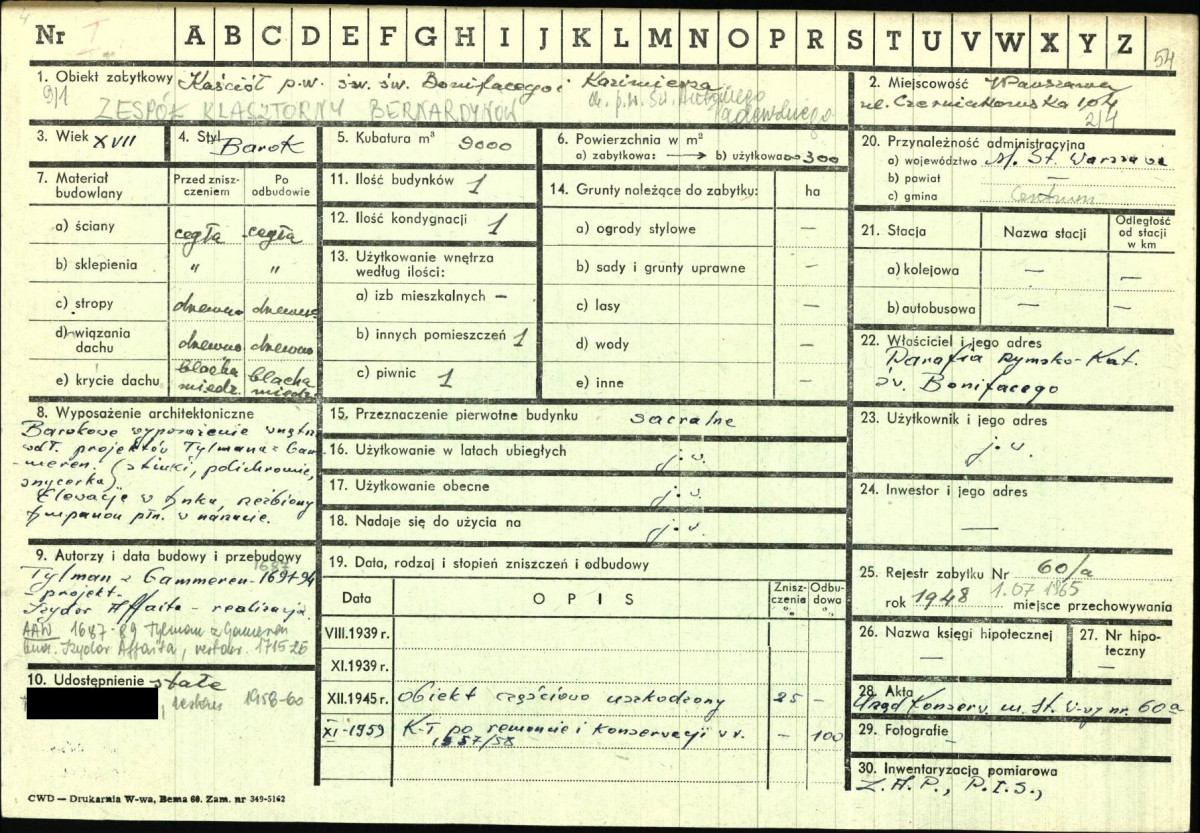 4
Nr I A B C D E F G H I J K L M N O P R S T U V W X Y Z
54
1. Obiekt zabytkowy Kościół p.w. św. św. Bonifacego i Kazimierza
9/1 ZESPÓŁ KLASZTORNY BERNARDYNÓW
ob. p.w. Św. Antoniego
Padewskiego
2. Miejscowość Warszawa
ul. Czerniakowska
2/4
3. Wiek XVII
4. Styl Barok
5. Kubatura m³ 9000
6. Powierzchnia w m²
a) zabytkowa: → b) użytkowa ∞ 300
7. Materiał budowlany
Przed znisz-czeniem
Po odbudowie
a) ściany cegła cegła
b) sklepienia " "
c) stropy drewno drewno
d) wiązania dachu drewno drewno
e) krycie dachu blacha miedz. blacha miedz.
8. Wyposażenie architektoniczne
Barokowe wyposażenie wnętrz
wdł. projektów Tylmana z Gam-
-meren. (stiuki, polichromie,
snycerka).
Elewacje w tynku, rzeźbiony
tympanon płn. w
9. Autorzy i data budowy i przebudowy
1687
Tylman z Gammeren - 1691-94
-projekt.
Izydor Affaita - realizacja.
AAW 1687-89 Tylman z Gameren
bud. Izydor Affaita, restaur. 1715 26
10. Udostępnienie stałe
, restaur 1958-60
11. Ilość budynków 1
12. Ilość kondygnacji 1
13. Użytkowanie wnętrza
według ilości:
a) izb mieszkalnych –
b) innych pomieszczeń 1
c) piwnic 1
14. Grunty należące do zabytku: ha
a) ogrody stylowe –
b) sady i grunty uprawne –
c) lasy –
d) wody –
e) inne –
15. Przeznaczenie pierwotne budynku sacralne
16. Użytkowanie w latach ubiegłych j.w.
17. Użytkowanie obecne j.w.
18. Nadaje się do użycia na j.w.
19. Data, rodzaj i stopień zniszczeń i odbudowy
Data OPIS Znisz-czenia % Odbu-dowa %
VIII.1939 r.
XI.1939 r.
XII.1945 r. Obiekt częściowo uszkodzony 25 –
XI-1959 K-ł po remoncie i konserwacji w r. – 100
1957/58
20. Przynależność administracyjna
a) województwo M. St. Warszawa
b) powiat –
c) gmina Centrum
21. Stacja Nazwa stacji Odległość od stacji w km
a) kolejowa – –
b) autobusowa – –
22. Właściciel i jego adres
Parafia Rzymsko-Kat.
św. Bonifacego
23. Użytkownik i jego adres
j.w.
24. Inwestor i jego adres
–
25. Rejestr zabytku Nr 60/a
rok 1948 1.07 1965 miejsce przechowywania
26. Nazwa księgi hipotecznej
–
27. Nr hipo-teczny
–
28. Akta
Urząd Konserw. m. St. W-wy nr. 60a
29. Fotografie –
30. Inwentaryzacja pomiarowa
Z.A.P., P.I.S.,
CWD — Drukarnia W-wa, Bema 60. Zam. nr 349-5162